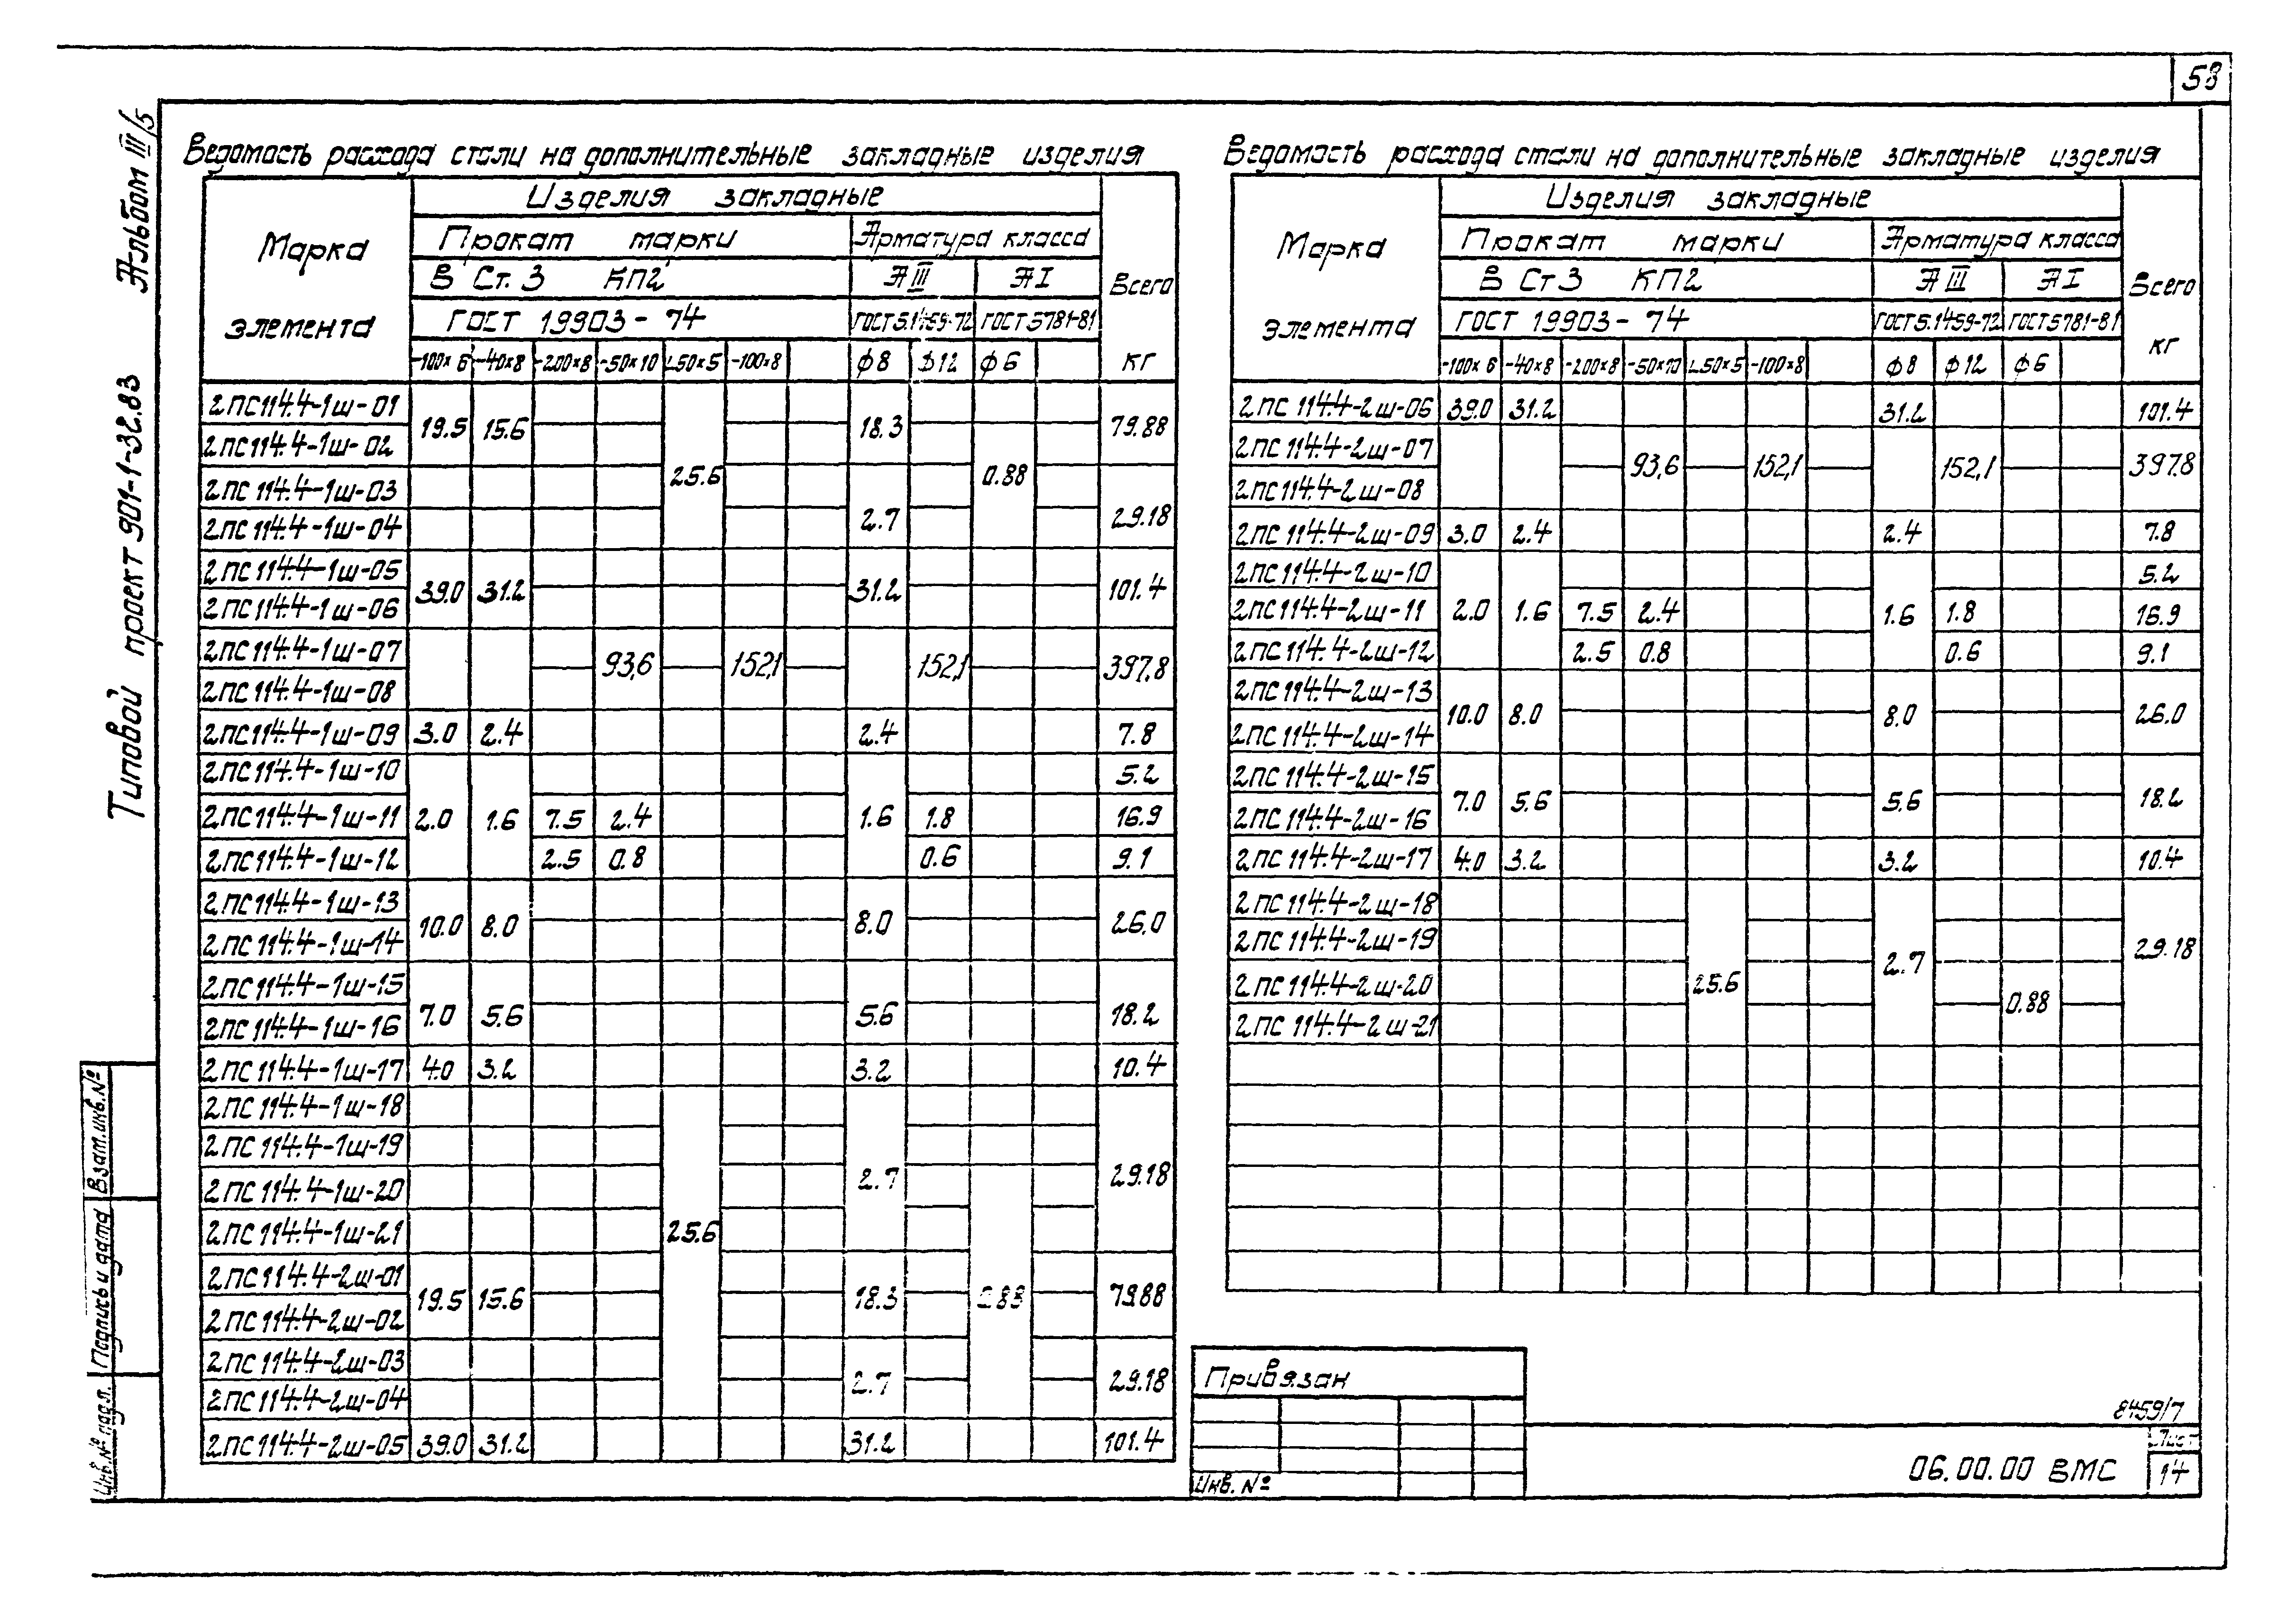 58
Альбом III/5
Типовой проект 901-1-32.83
Взам.инв.№
Подпись и дата
Инв.№ подл.
Ведомость расхода стали на дополнительные закладные изделия
Марка элемента
Изделия закладные
Всего кг
Прокат марки
Арматура класса
В Ст. 3 КП2
А III
А I
ГОСТ 19903-74
ГОСТ 5.1459-72
ГОСТ 5781-81
-100×6 -40×8 -200×8 -50×10 L50×5 -100×8 ф8 ф12 ф6
2ПС114.4-1ш-01
19.5 15.6 18.3 79.88
2ПС114.4-1ш-02
25.6 0.88
2ПС114.4-1ш-03
2.7 29.18
2ПС114.4-1ш-04
2ПС114.4-1ш-05
39.0 31.2 31.2 101.4
2ПС114.4-1ш-06
2ПС114.4-1ш-07
93,6 152,1 152,1 397.8
2ПС114.4-1ш-08
2ПС114.4-1ш-09 3.0 2.4 2.4 7.8
2ПС114.4-1ш-10 5.2
2ПС114.4-1ш-11 2.0 1.6 7.5 2.4 1.6 1.8 16.9
2ПС114.4-1ш-12 2.5 0.8 0.6 9.1
2ПС114.4-1ш-13
10.0 8.0 8.0 26.0
2ПС114.4-1ш-14
2ПС114.4-1ш-15
7.0 5.6 5.6 18.2
2ПС114.4-1ш-16
2ПС114.4-1ш-17 4.0 3.2 3.2 10.4
2ПС114.4-1ш-18
2ПС114.4-1ш-19
2.7 29.18
2ПС114.4-1ш-20
2ПС114.4-1ш-21 25.6
2ПС114.4-2ш-01
19.5 15.6 18.3 0.88 79.88
2ПС114.4-2ш-02
2ПС114.4-2ш-03
2.7 29.18
2ПС114.4-2ш-04
2ПС114.4-2ш-05 39.0 31.2 31.2 101.4
Ведомость расхода стали на дополнительные закладные изделия
Марка элемента
Изделия закладные
Всего кг
Прокат марки
Арматура класса
В Ст 3 КП2
А III
А I
ГОСТ 19903-74
ГОСТ 5.1459-72
ГОСТ 5781-81
-100×6 -40×8 -200×8 -50×10 L50×5 -100×8 ф8 ф12 ф6
2ПС114.4-2ш-06 39.0 31.2 31.2 101.4
2ПС114.4-2ш-07
93,6 152,1 152,1 397.8
2ПС114.4-2ш-08
2ПС114.4-2ш-09 3.0 2.4 2.4 7.8
2ПС114.4-2ш-10 5.2
2ПС114.4-2ш-11 2.0 1.6 7.5 2.4 1.6 1.8 16.9
2ПС114.4-2ш-12 2.5 0.8 0.6 9.1
2ПС114.4-2ш-13
10.0 8.0 8.0 26.0
2ПС114.4-2ш-14
2ПС114.4-2ш-15
7.0 5.6 5.6 18.2
2ПС114.4-2ш-16
2ПС114.4-2ш-17 4.0 3.2 3.2 10.4
2ПС114.4-2ш-18
2ПС114.4-2ш-19
2.7 29.18
2ПС114.4-2ш-20 25.6
0.88
2ПС114.4-2ш-21
Привязан
Инв. №
8459/7
06.00.00 ВМС
Лист
14